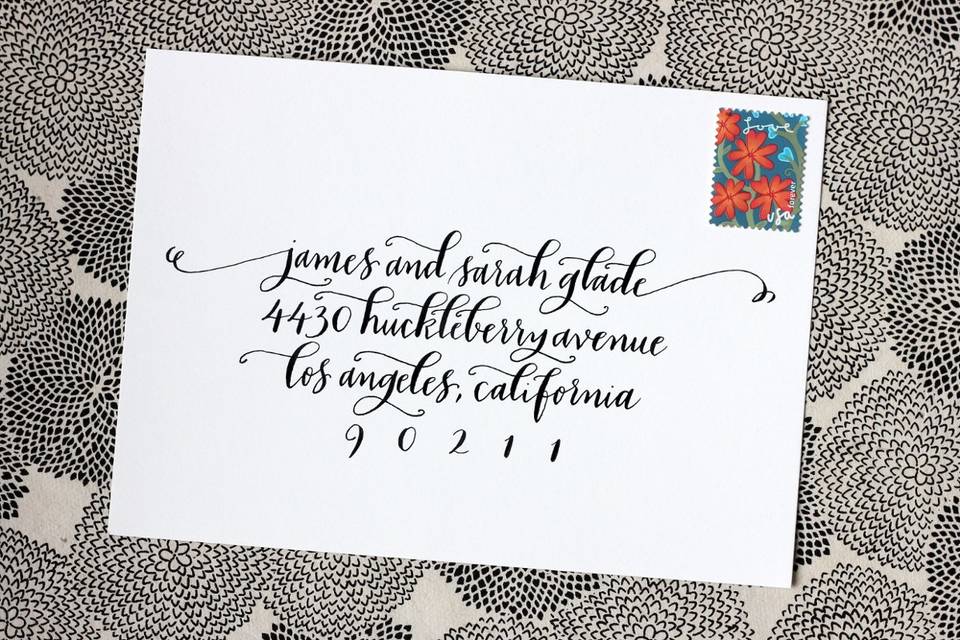 Love
forever
usa
james and sarah glade
4430 huckleberry avenue
los angeles, california
90211